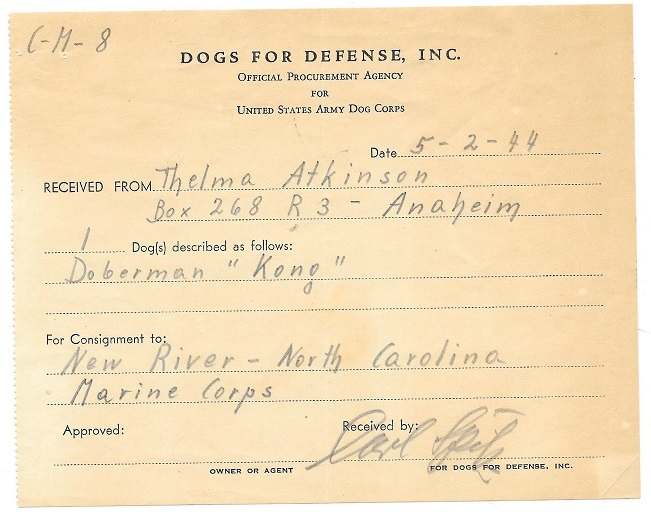 C-M-8
DOGS FOR DEFENSE, INC.
OFFICIAL PROCUREMENT AGENCY
FOR
UNITED STATES ARMY DOG CORPS
Date 5-2-44
RECEIVED FROM Thelma Atkinson
Box 268 R 3 - Anaheim
1 Dog(s) described as follows:
Doberman "Kong"
For Consignment to:
New River - North Carolina
Marine Corps
Approved: Received by: Carl Spitz
OWNER OR AGENT FOR DOGS FOR DEFENSE, INC.